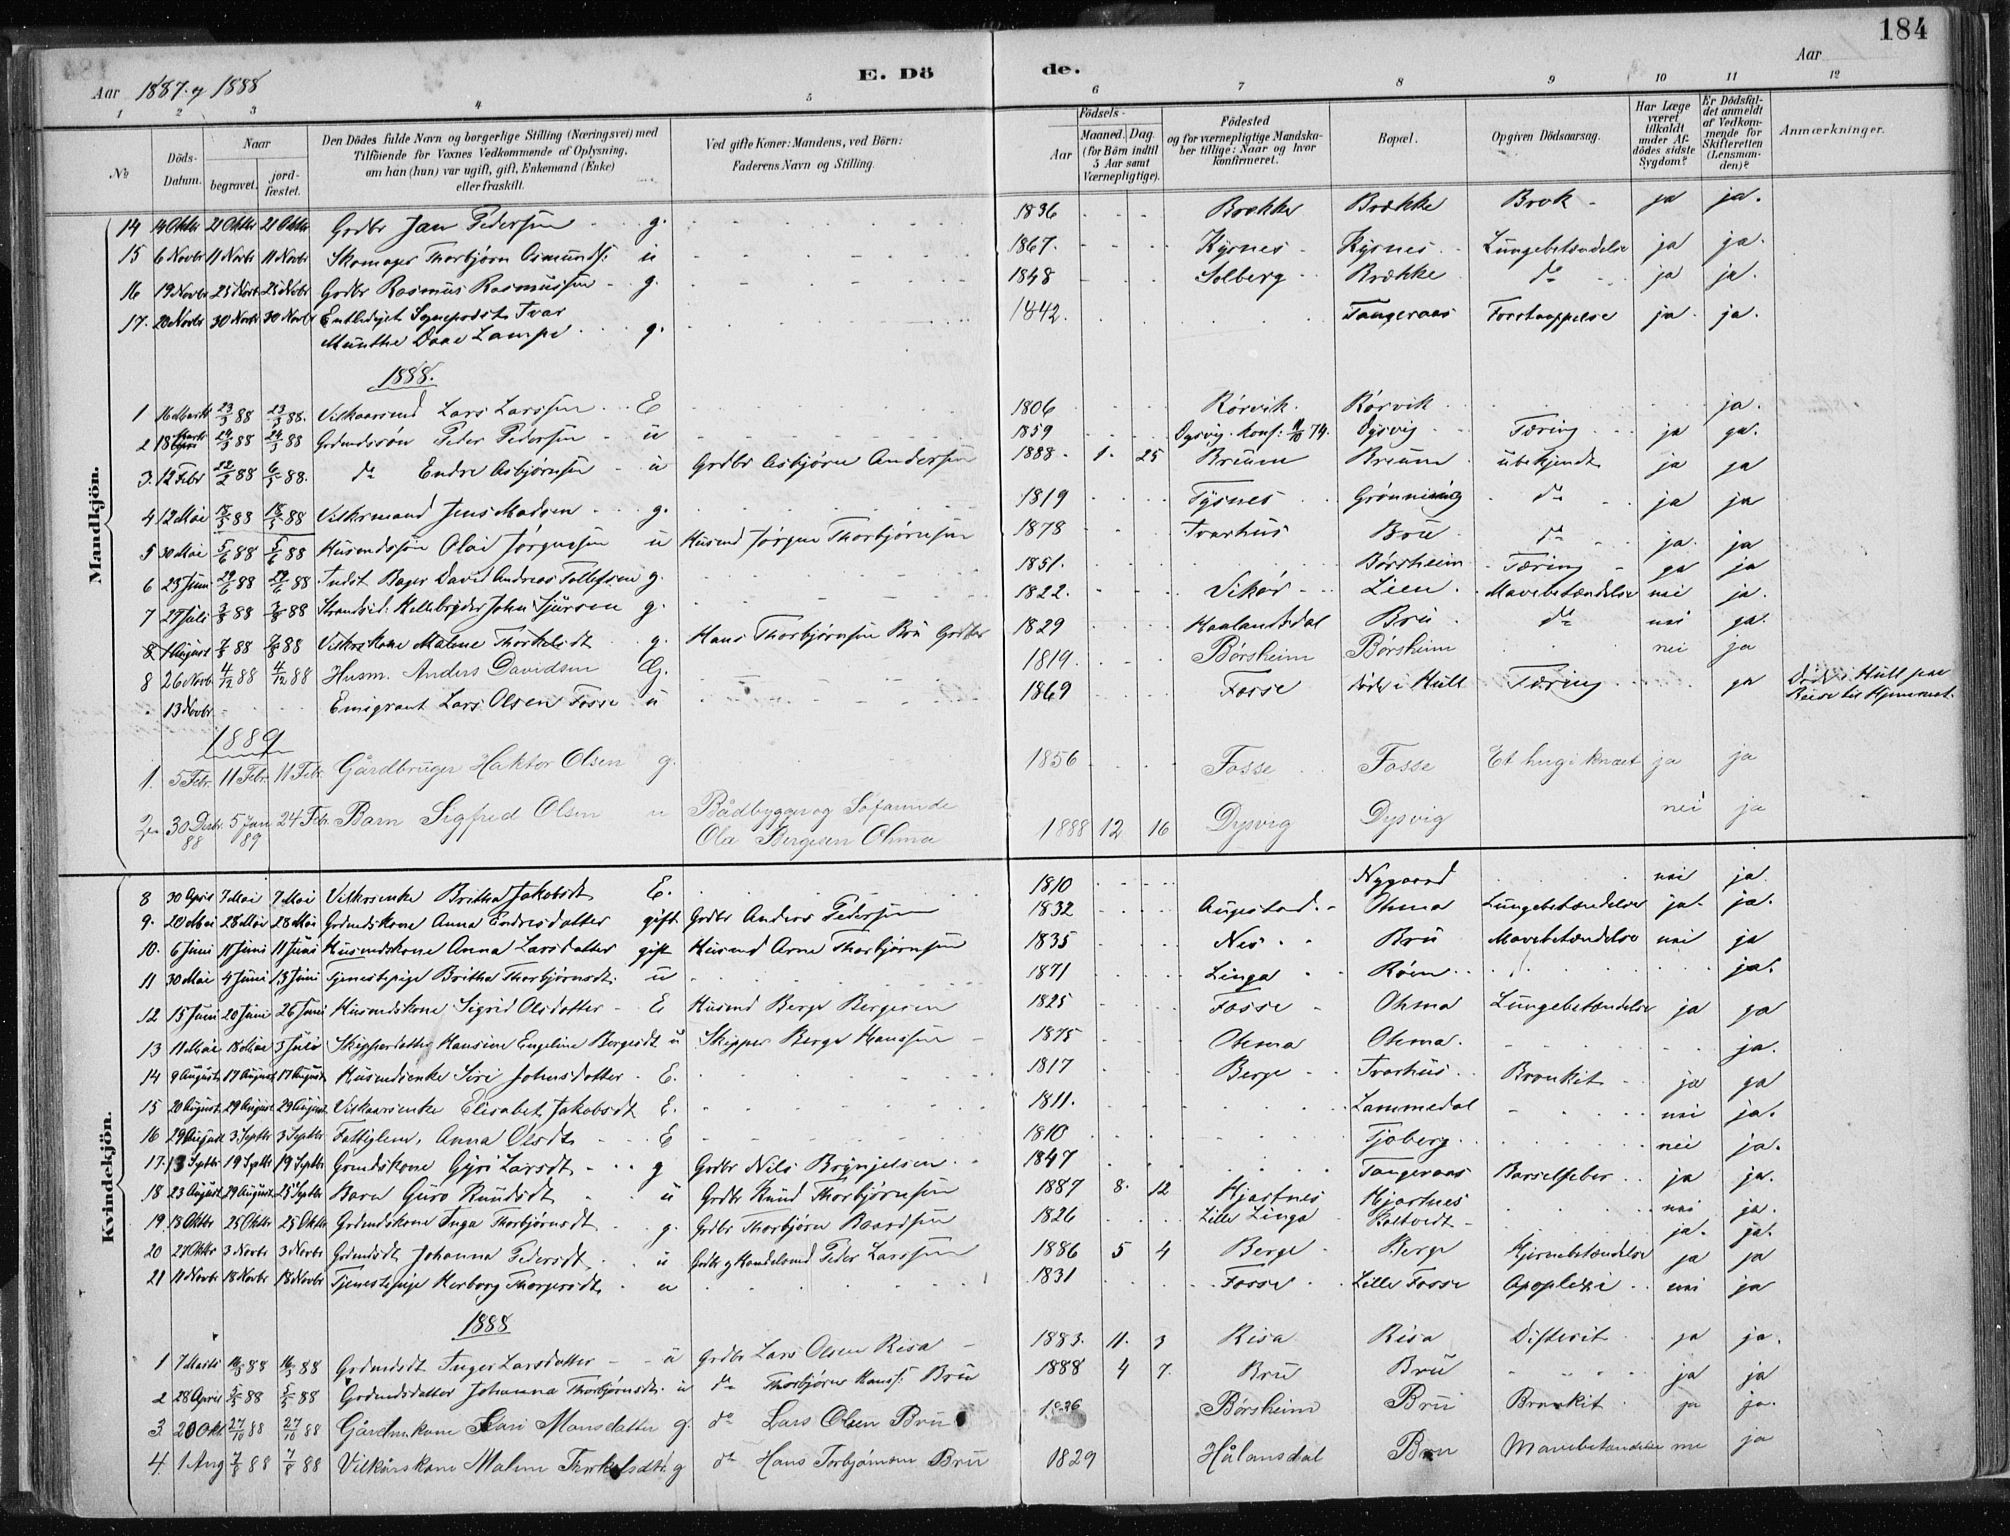 184
Aar 1887 og 1888
E. Dö
de.
Aar
1 2 3 4 5 6 7 8 9 10 11 12
No
Döds-Datum.
Naar
begravet.
jord-fæstet.
Den Dödes fulde Navn og borgerlige Stilling (Næringsvei) med
Tilföiende for Voxnes Vedkommende af Oplysning,
om han (hun) var ugift, gift, Enkemand (Enke)
eller fraskilt.
Ved gifte Koner: Mandens, ved Börn:
Faderens Navn og Stilling.
Födsels-
Aar
Maaned. Dag.
(for Börn indtil
5 Aar samt
Værnepligtige).
Födested
og for værnepligtige Mandska-
ber tillige: Naar og hvor
konfirmeret.
Bopæl.
Opgiven Dödsaarsag.
Har Læge
været
tilkaldt
under Af-
dödes sidste
Sygdom?
Er Dödsfal-
det anmeldt
af Vedkom-
mende for
Skifteretten
(Lensman-
den)?
Anmærkninger.
Mandkjön.
14 14 Oktbr 21 Oktbr 21 Oktbr Grdbr Jan Pedersen g. 1836 Brække Brække Brok ja ja.
15 6 Novbr 11 Novbr 11 Novbr Skomager Thorbjørn Asmunds. u 1867. Kysnes Kysnes Lungebetændelse ja ja.
16 19 Novbr 25 Novbr 25 Novbr Grdbr Rasmus Rasmussen g. 1848 Solberg Brække do ja ja.
17. 20 Novbr 30 Novbr 30 Novbr Entlediget Sogneprest Ivar
Munthe Daae Lampe g. 1842. Tangeraas Forstoppelse ja. ja.
1888.
1 16 Marts 23/3 88 23/3 88. Vilkaarsmd Lars Larssen E 1806 Rørvik. Rørvik ja.
2 18 Marts 24/3 88 24/3 88 Grdmdssøn Peder Pedersen u 1859 Dysvig. Konf: 74. Dysvig Tæring ja ja.
3. 12 Febr 22/2 88 88. do Endre Asbjørnsen u Grdbr Asbjørn Andersen 1888 1. 25 Breum Breum ubekjendt ja ja
4 12 Mai 18/5 88 18/5 88 Vilkrmand Jens Madsen g. 1819 Tysnes Grønning do ja ja
5 30 Mai 5/6 88 5/6 88 Husmdssøn Olai Jørgensen u Husmd Jørgen Thorbjørnsen 1878 Tvarhus Bru do ja. ja
6 23 Juni 29/6 88 29/6 88 Indst. Bager David Andreas Tollefsen g. 1851. Børsheim Tæring ja ja
7 29 Juli 3/8 88 3/8 88 Strandsid: Hellebryder John Sjursen g. 1822. Vikør Lien Mavebetændelse nei ja.
8 1 August 7/8 88 7/8 88 Vilkrskone Malene Thorkelsdt g. Hans Thorbjørnsen Bru Grdbr 1829 Haalandsdal Bru do nei ja.
8 26 Novb. 4/12 88 4/12 88 Husm. Anders Davidsen G. 1819. Børsheim Børsheim nei ja
13 Novbr Emigrant Lars Olsen Fosse u 1869 Fosse døde i Hull Tæring ja Døde i Hull paa
Reise til Hjemmet.
1889
1. 5 Febr. 11 Febr. 11 Febr. Gårdbruger Haktor Olsen g. 1856 Fosse Fosse Et hug i knæet ja ja
2. 30 Decbr. 88 5 Jan 89 24 Febr. Barn Sigfred Olsen u Bådbygger og Søfarende
Ola Bergesen Ohma 1888 12 16 Dysvig Dysvig nei ja
Kvindekjön.
8 30 April 7 Mai 7 Mai Vilkrsenke Britha Jakobsdt E. 1810 Nygaard nei ja.
9. 20 Mai 28 Mai 28 Mai Grdmdskone Anna Endresdatter gift. Grdbr Anders Pedersen 1832 Augestad Ohma Lungebetændelse ja. ja.
10. 6 Juni 11 Juni 11 Juni Husmdskone Anna Larsdatter gift Husmd Arne Thorbjørnsen 1835 Nes Bru Mavebetændelse nei ja
11 30 Mai 4 Juni 13 Juni Tjenestepige Britha Thorbjørnsdt. u 1871 Linga Røen ja.
12 15 Juni 20 Juni 26 Juni Husmdskone Sigrid Olsdatter E Husmd Berge Bergesen 1825 Fosse Ohma Lungebetændelse ja ja
13 11 Mai 18 Mai 3 Juli Skipperdatter Hansine Engeline Bergesdt u Skipper Berge Hanssen 1875 Ohma Ohma. ja.
14 9 August 17 August 17 August Husmdsenke Siri Johnsdatter E. 1817 Berge Tvarhus Bronkit ja ja
15 20 August 29 August 29 August Vilkaarsenke Elisabet Jakobsdt E. 1811. Lammedal nei ja.
16 29 August 3 Septbr 3 Septbr Fattiglem, Anna Olsdt. E 1810 Tjoberg nei ja.
17. 13 Septbr 19 Septbr 19 Septbr Grmdskone Gyri Larsdt. g Grdbr Nils Brynjelsen 1847 Tangeraas Barselfeber ja ja.
18 23 August 29 August 25 Septbr Barn Guro Knudsdt u Grdbr Knud Thorbjørnsen 1887 8. 12 Hjartnes Hjartnes nei ja.
19. 18 Oktbr 25 Oktbr 25 Oktbr Grdmdskone Inga Thorbjørnsdt. g. Grdbr Thorbjørn Baardsen 1826 Lille Linga ja. ja.
20 27 Oktbr 3 Novbr 3 Novbr Grdmdsdt Johanna Pedersdt. u Grdbr g Handelsmd Peder Larssen 1886 5 4 Berge Berge Hjernebetændelse ja ja
21 11 Novbr 18 Novbr 18 Novbr Tjenestepige Herborg Thorgersdt. u 1831 Fosse Lille Fosse Apoplexi nei ja
1888
1 7 Marts 16/3 88 16/3 88 Grdmdsdt Inger Larsdatter u Grdbr Lars Olsen Risa 1883. 11. 3 Risa Risa Difterit ja ja.
2 28 April 5/5 88 5/5 88 Grdmdsdatter Johanna Thorbjørnsdt. u do Thorbjørn Hanss. Bru 1888 4 7. Bru Bru ja ja
3 20 Okt. 27/10 88 27/10 88 Gårdm.kone Kari Monsdatter g. do Lars Olsen Bru 1836 Børsheim Bru Bronkit ja ja.
4. 1 Aug 7/8 88 7/8 88 Vilkårskone Malene Thorkelsdtr. g do Hans Torbjørnsen Bru 1829 Hålansdal Bru Mavebetændelse nei ja